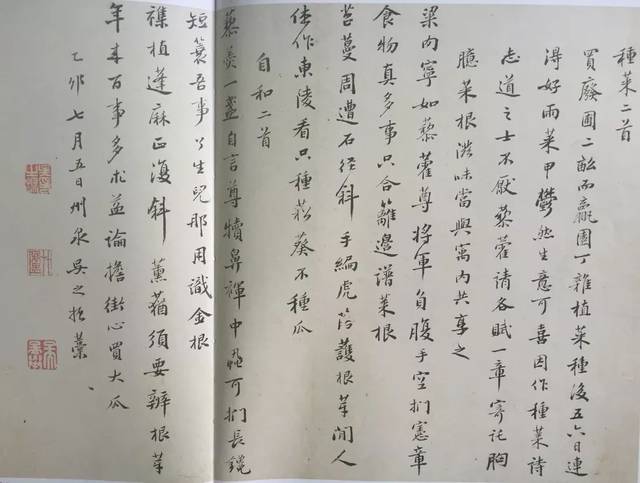 種菜二首
買廢圃二畝而贏園丁雜植菜種後五六日連
得好雨菜甲鬱然生意可喜因作種菜詩
志道之士不厭藜藿請各賦一章寄託胸
臆菜根滋味當與寓內共享之
粱肉寧如藜藿尊將軍負腹手空捫憲章
食物真多事只合籬邊譜菜根
苔蔓周遭石徑斜手編虎笿護根芽閒人
休作東陵看只種菘葵不種瓜
自和二首
藜羹一盞自言尊犢鼻褌中蝨可捫長鑱
短蓑吾事了生兒那用識金根
襍植蓬麻正復斜薰蕕須要辨根芽
年來百事多求益論擔街心買大瓜
乙卯七月五日州泉吳之振藁